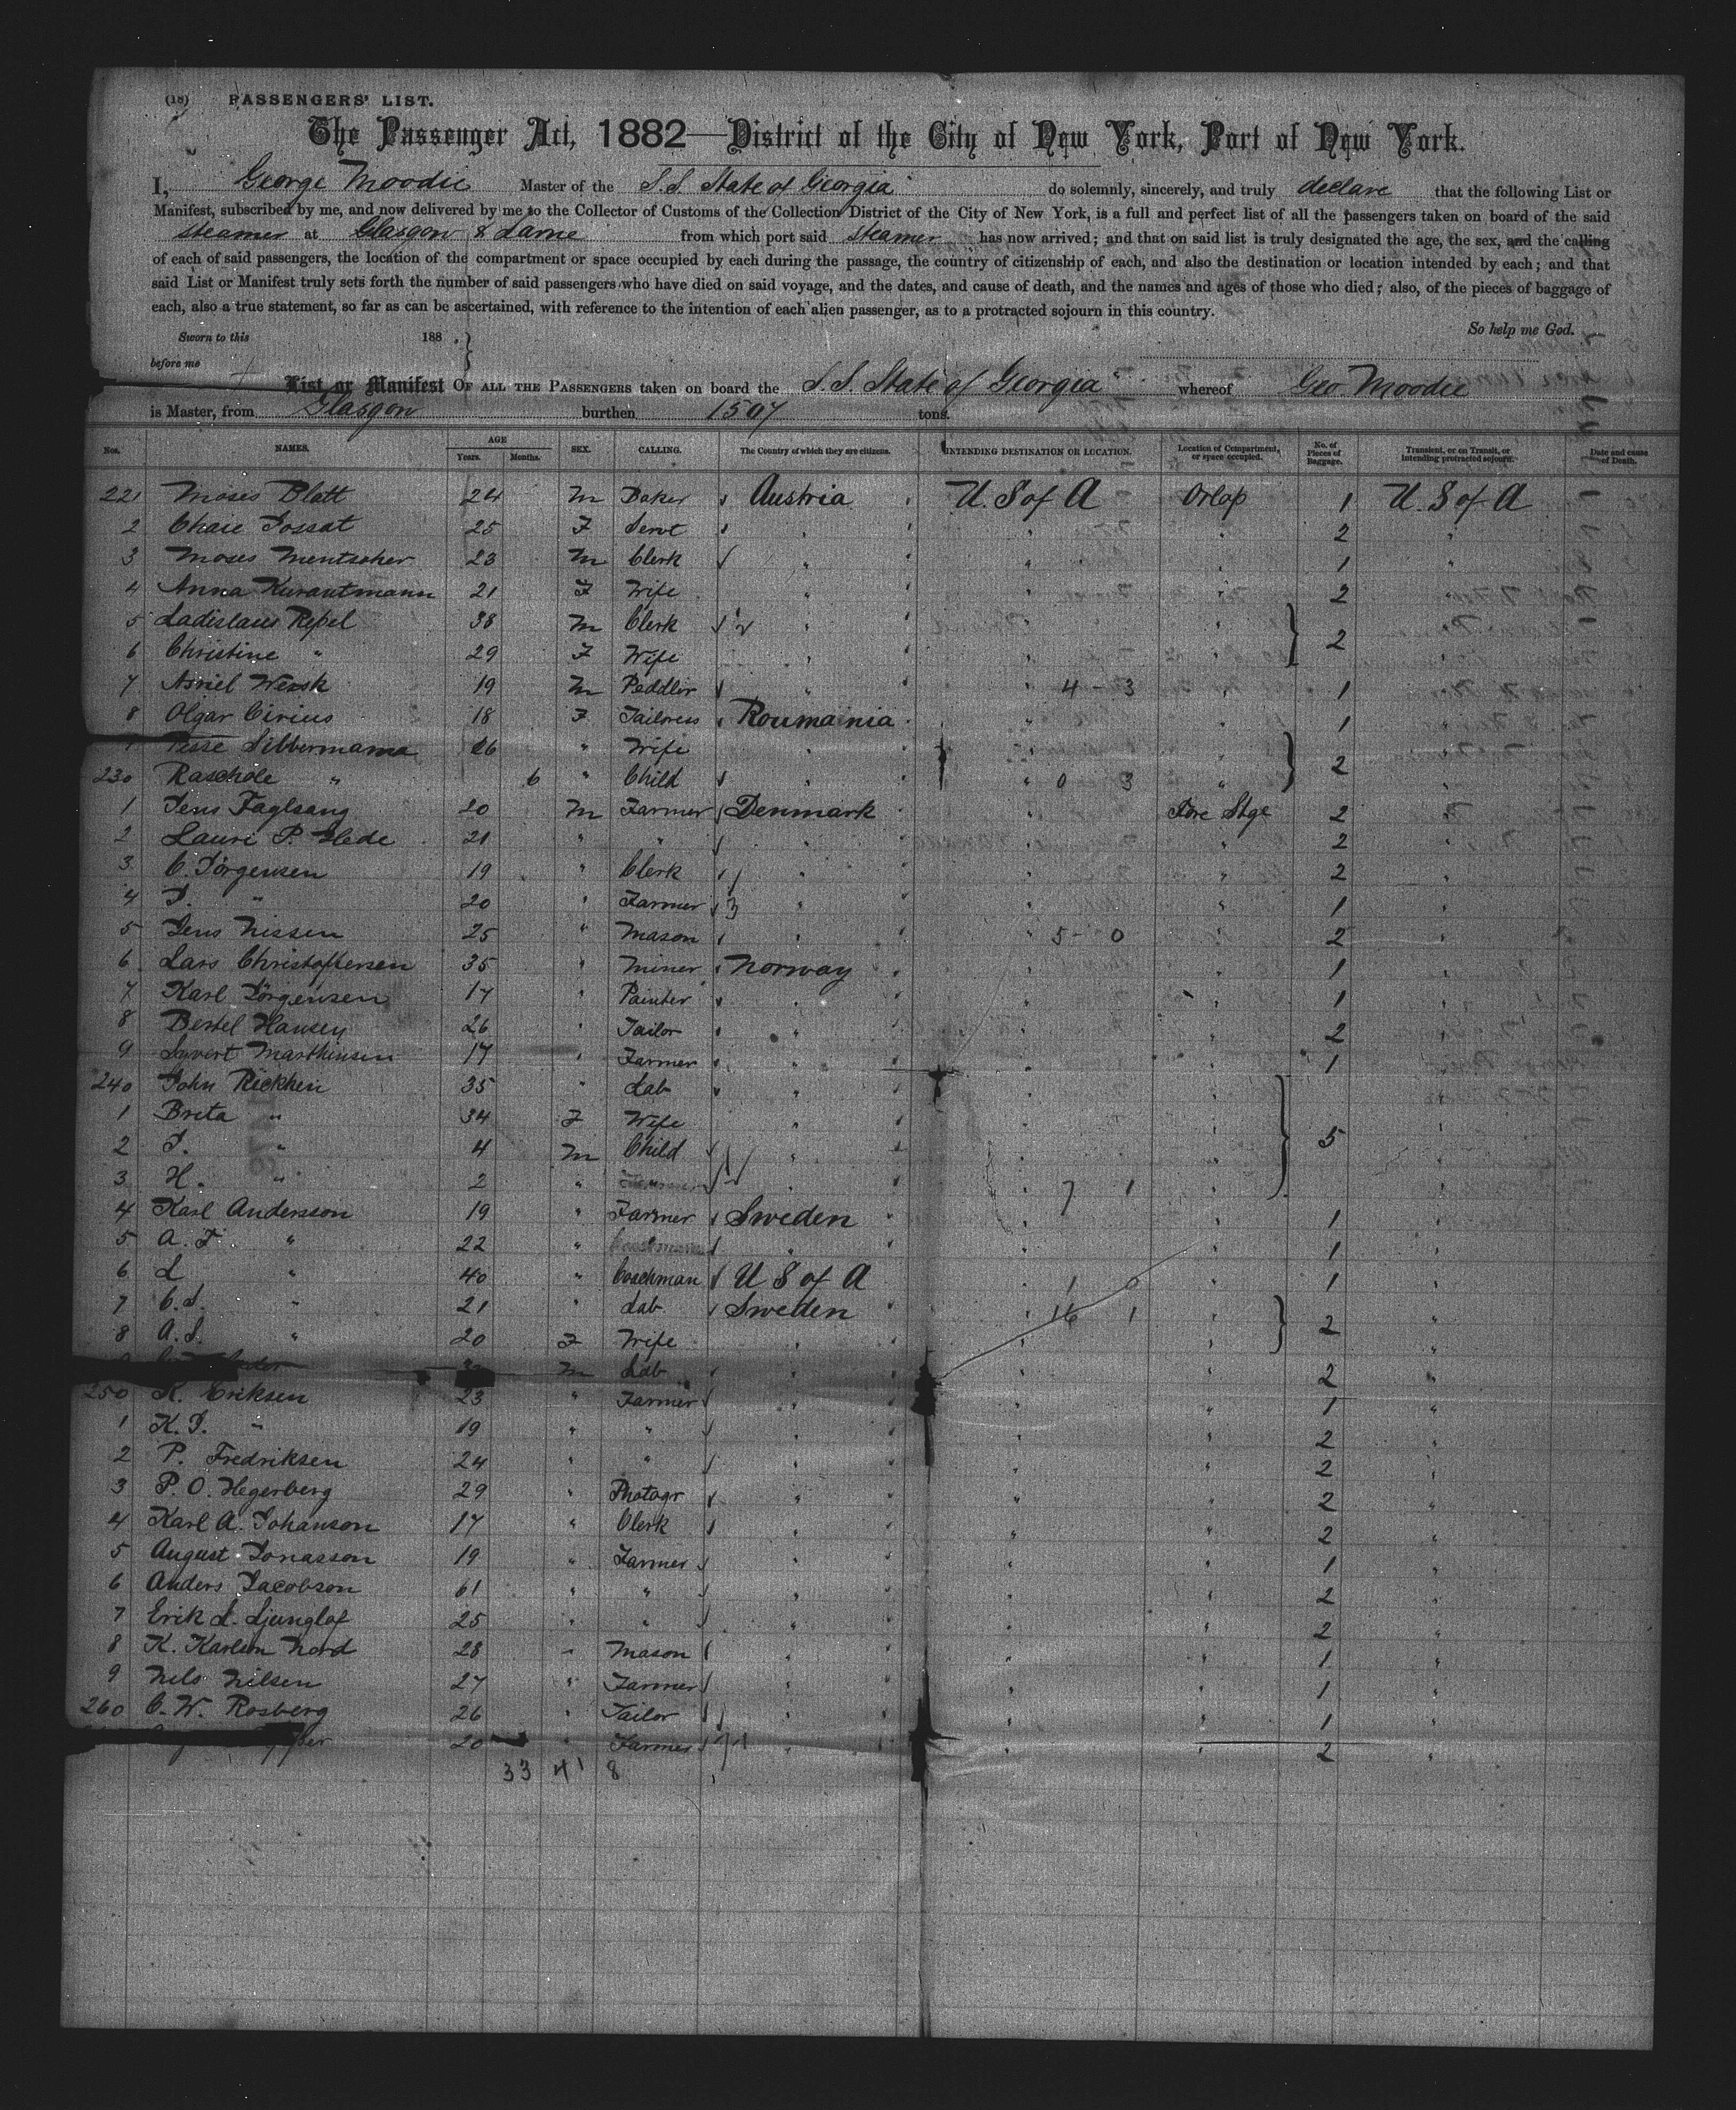 (18) PASSENGERS' LIST.
The Passenger Act, 1882—District of the City of New York, Port of New York.
I, George Moodie Master of the S.S. State of Georgia do solemnly, sincerely, and truly declare that the following List or
Manifest, subscribed by me, and now delivered by me to the Collector of Customs of the Collection District of the City of New York, is a full and perfect list of all the passengers taken on board of the said
steamer at Glasgow & Larne from which port said steamer has now arrived; and that on said list is truly designated the age, the sex, and the calling
of each of said passengers, the location of the compartment or space occupied by each during the passage, the country of citizenship of each, and also the destination or location intended by each; and that
said List or Manifest truly sets forth the number of said passengers who have died on said voyage, and the dates, and cause of death, and the names and ages of those who died; also, of the pieces of baggage of
each, also a true statement, so far as can be ascertained, with reference to the intention of each alien passenger, as to a protracted sojourn in this country.
So help me God.
Sworn to this 188 .
before me
List or Manifest OF ALL THE PASSENGERS taken on board the S.S. State of Georgia whereof Geo. Moodie
is Master, from Glasgow burthen 1507 tons.
Nos. NAMES. AGE Years. Months. SEX. CALLING. The Country of which they are citizens. INTENDING DESTINATION OR LOCATION. Location of Compartment, or space occupied. No. of Pieces of Baggage. Transient, or on Transit, or intending protracted sojourn. Date and cause of Death.
221 Moses Blatt 24 M Baker Austria U.S of A Orlop 1 U.S of A
2 Chaie Jossat 25 F Servt " " " 2 "
3 Moses Mentscher 23 M Clerk " " " 1 "
4 Anna Kurantmann 21 F Wife " " " 2 "
5 Ladislaus Repel 38 M Clerk " " " 2 "
6 Christine " 29 F Wife " " "
7 Asriel Wersk 19 M Peddler " " 4-3 " 1 "
8 Olgar Cirius 18 F Tailoress Roumania " " 1 "
Libbermama 26 " Wife " " " 2 "
230 Raschole " 6 " Child " " 0 3 "
1 Jens Faglsang 20 M Farmer Denmark " Fore Stge 2 "
2 Lauri P. Hede 21 " " " " " 2 "
3 C. Jörgensen 19 " Clerk " " " 2 "
4 J. " 20 " Farmer " " " 1 "
5 Jens Nissen 25 " Mason " " 5-0 " 2 "
6 Lars Christoffersen 35 " Miner Norway " " 1 "
7 Karl Jörgensen 17 " Painter " " " 1 "
8 Bertel Hansen 26 " Tailor " " " 2 "
9 Syvert Marthinsen 17 " Farmer " " " 1 "
240 John Rickhen 35 " Lab " " " 5 "
1 Breta " 34 F Wife " " " "
2 J. " 4 M Child " " " "
3 H. " 2 " " " 7 1 " "
4 Karl Andersson 19 " Farmer Sweden " " 1 "
5 A. F. " 22 " " " " 1 "
6 L " 40 " Coachman U S of A " 1 0 " 1 "
7 C. S. " 21 " Lab Sweden " 16 1 " 2 "
8 A. S. " 20 F Wife " " " "
M Lab " " " 2 "
250 K. Eriksen 23 " Farmer " " " 1 "
1 K. J. " 19 " " " " " 2 "
2 P. Fredriksen 24 " " " " " 2 "
3 P. O. Hegerberg 29 " Photogr " " " 2 "
4 Karl A. Johanson 17 " Clerk " " " 2 "
5 August Jonasson 19 " Farmer " " " 1 "
6 Anders Jacobson 61 " " " " " 2 "
7 Erik L. Ljunglof 25 " " " " " 2 "
8 K. Karlson Nord 28 " Mason " " " 1 "
9 Nils Nilsen 27 " Farmer " " " 1 "
260 C. W. Rosberg 26 " Tailor " " " 1 "
20 " Farmer " " " 2 "
33 41 8